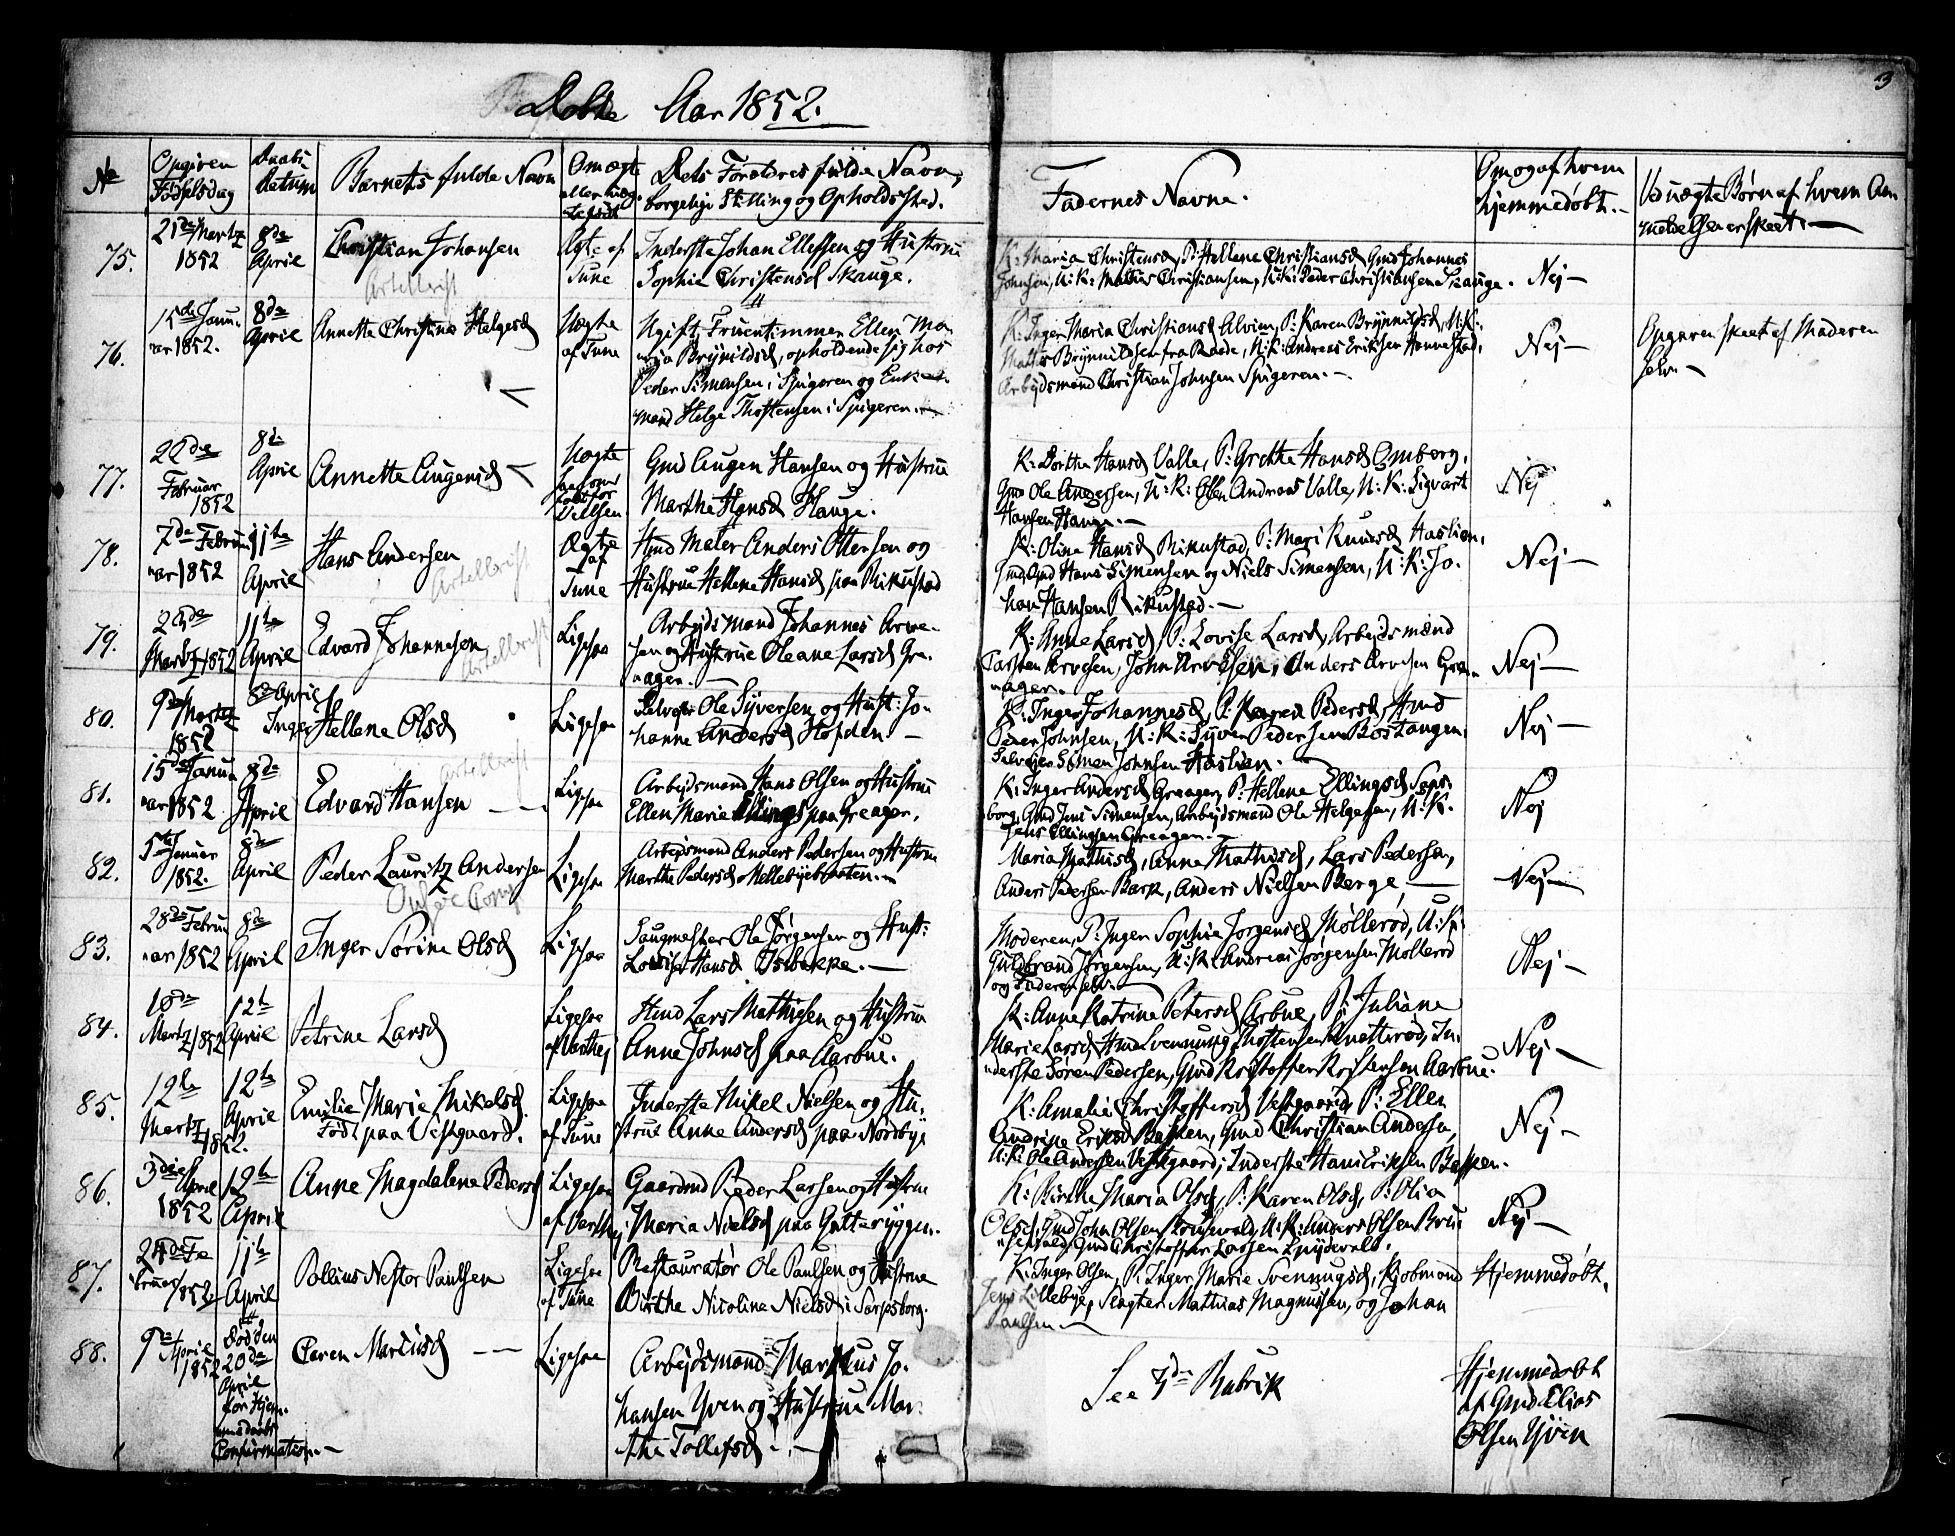 Døbte Aar 1852.
3
No
Opgiven Fødselsdag
Daabs Datum
Barnets fulde Navn
Om ægte eller uægte
Dets Forældres fulde Navn, borgerlige Stilling og Opholdssted.
Faddernes Navne.
Om og af hvem hjemmedøbt.
Ved uægte Børn af hvem Anmeldelsen er skeet.
75.
21de Martz 1852
8de April
Christian Johansen
Attestrift
Ægte af Tune
Inderste Johan Ellefsen og Hustrue
Sophie Christensd Skauge.
K: Maria Christensd, P: Hellene Christiansd, Gmd Johannes
Johnsen, U:K: Mathis Christiansen, U:K: Peder Christiansen Skauge.
Nej
76.
15de Januar 1852.
8de April
Annette Christine Helgesd
Uægte af Tune
Ugift Fruentimmer Ellen Maria
Brynildsd, opholdende sig hos
Peder Simensen i Spigeren og Enkemand
Helge Thostensen i Spigeren.
K: Inger Maria Christiansd Alvim, P: Karen Brynnildsd, U:K:
Mathis Brynnildsen fra Raade, U:K: Andreas Eriksen Hannestad,
Arbejdsmand Christian Johnsen Spigeren.
Nej
Opgaven skeet af Moderen selv.
77.
22de Februar 1852
8de April
Annette Augensd
Uægte
Gmd Augen Hansen og Hustrue
Marthe Hansd Hauge.
K: Dorthe Hansd Valle, P: Grethe Hansd Omberg,
Gmd Ole Andersen, U:K: Ellen Andreas Valle, U:K: Sigvart
Hansen Hauge.
Nej
78.
7de Februar 1852
11te April
Hans Andersen
Ægte af Tune
Hmd Maler Anders Ottersen og
Hustrue Hellene Hansd paa Rikustad
K: Oline Hansd Rikustad, P: Mari Knudsd Haslien,
Hans Simensen og Niels Simensen, U:K: Johan
Hansen Rikustad.
Nej
79.
Martz 1852
11te April
Edvard Johannesen
Ligesaa
Arbejdsmand Johannes Arvesen
og Hustrue Oleane Larsd Greaager.
K: Anne Larsd, P: Lovise Larsd, Arbejdsmænd
Carsten Arvesen, John Arvesen, Anders Arvesen Greaager.
Nej
80.
9de Martz 1852
8de April
Inger Hellene Olsd
Ligesaa
Selvejer Ole Syversen og Hust: Johanne
Andersd Hofden
K: Inger Johannesd, P: Karen Pedersd, Hmd
Peder Johnsen, U:K: Syver Pedersen Bostangen,
Selvejer Simen Johnsen Haslien.
Nej
81.
15de Januar 1852
8de April
Edvard Hansen
Ligesaa
Arbejdsmand Hans Olsen og Hustrue
Ellen Marie Ellingsd paa Greager.
K: Inger Andersd Greaager, P: Hellene Ellingsd Sarpsborg,
Gmd Jens Simensen, Arbejdsmand Ole Helgesen, U:K.
Jens Ellingsen Greaager.
Nej
82.
5te Januar 1852.
8de April
Peder Lauritz Andersen
Ligesaa
Arbejdsmand Anders Pedersen og Hustrue
Marthe Pedersd Mellebyebraaten.
Maria Mathisd, Anne Mathisd, Lars Pedersen,
Anders Pedersen Bark, Anders Nielsen Berge,
Nej
83.
28de Februar 1852
8de April
Inger Sorine Olsd
Ligesaa
Saugmester Ole Jørgensen og Hust:
Lovise Hansd Isebakke.
Moderen, P: Inger Sophie Jorgensd Møllerød, U:K:
Guldbrand Jørgensen, U:K: Andreas Jørgensen Møllerød
og Faderen selv.
Nej
84.
10de Martz 1852
12te April
Petrine Larsd
Ligesaa af Varteig
Hmd Lars Mathisen og Hustrue
Anne Johnsd paa Aarbue.
K: Anne Katrine Petersd Arbue, P: Juliane
Marie Larsd, Hmd Svennung Thostensen Knatterød, Inderste
Søren Pedersen, Gmd Kristoffer Kristensen Aarbue.
Nej
85.
12te Martz 1852.
12te April
Emilie Marie Mikelsd.
Født paa Vestgaard.
Ligesaa af Tune
Inderste Mikel Nielsen og Hustrue
Anne Andersd paa Nordbye
K: Amalie Christoffersd Vestgaard, P: Ellen
Andrine Eriksd Bakken, Gmd Christian Andersen,
U:K: Ole Andersen Vestgaard, Inderste Hans Eriksen Bakken.
Nej
86.
3die April 1852
12te April
Anne Magdalene Pedersd
Ligesaa af Varteig
Gaardmd Peder Larsen og Hustrue
Maria Nielsd paa Gatteryggen.
K: Birthe Maria Olsd, P: Karen Olsd, P: Olia
Olsd, Gmd John Olsen, U:K: Anders Olsen
Gmd Christoffer Larsen Spydevold.
Nej
87.
24de Februar 1852
11te April
Pollius Nestor Paulsen
Ligesaa af Tune
Restauratør Ole Paulsen og Hustrue
Birthe Nicoline Nielsd i Sarpsborg.
K: Inger Olsen, P: Inger Marie Svennugsd, Kjøbmand
Jens Lillebye, Slagter Mathias Magnussen, og Johan
Paulsen
Hjemmedøbt.
88.
9de April 1852
Død den 20de April før Hjemmedaabs Confirmation.
Caren Marcusd
Ligesaa
Arbejdsmand Markus Johansen
Yven og Hustrue Marthe
Tollefsd.
See 3die Rubrik
Hjemmedøbt
af Gmd Elias
Olsen Yven